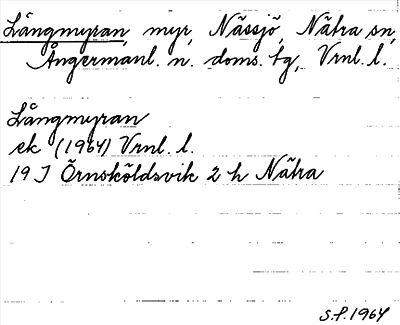 Långmyran, myr, Nässjö, Nätra sn,
Ångermanl. n. doms. tg, Vrnl. l.
Långmyran
ek (1964) Vrnl. l.
19 J Örnsköldsvik 2 h Nätra
S.F. 1964